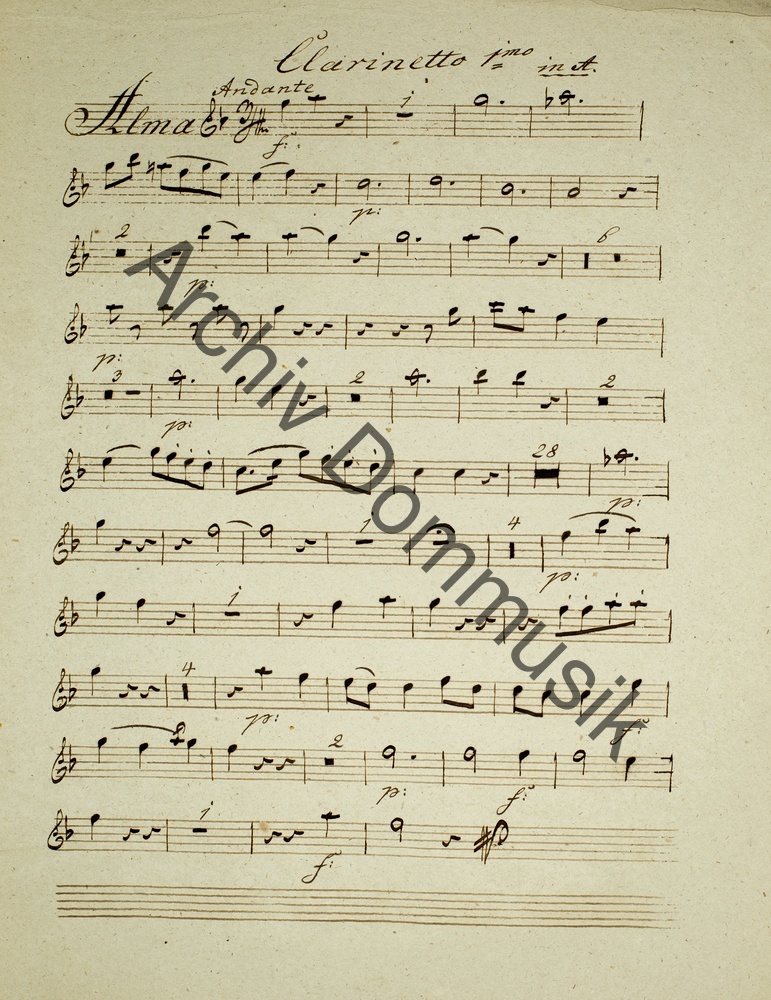 Clarinetto 1mo in A.
Andante
Alma 1
f:
p:
2 6
p:
p:
3 2 2
p:
28
p:
1 4
p:
1
4
p:
f:
2
p: f:
1
f:
Archiv Dommusik